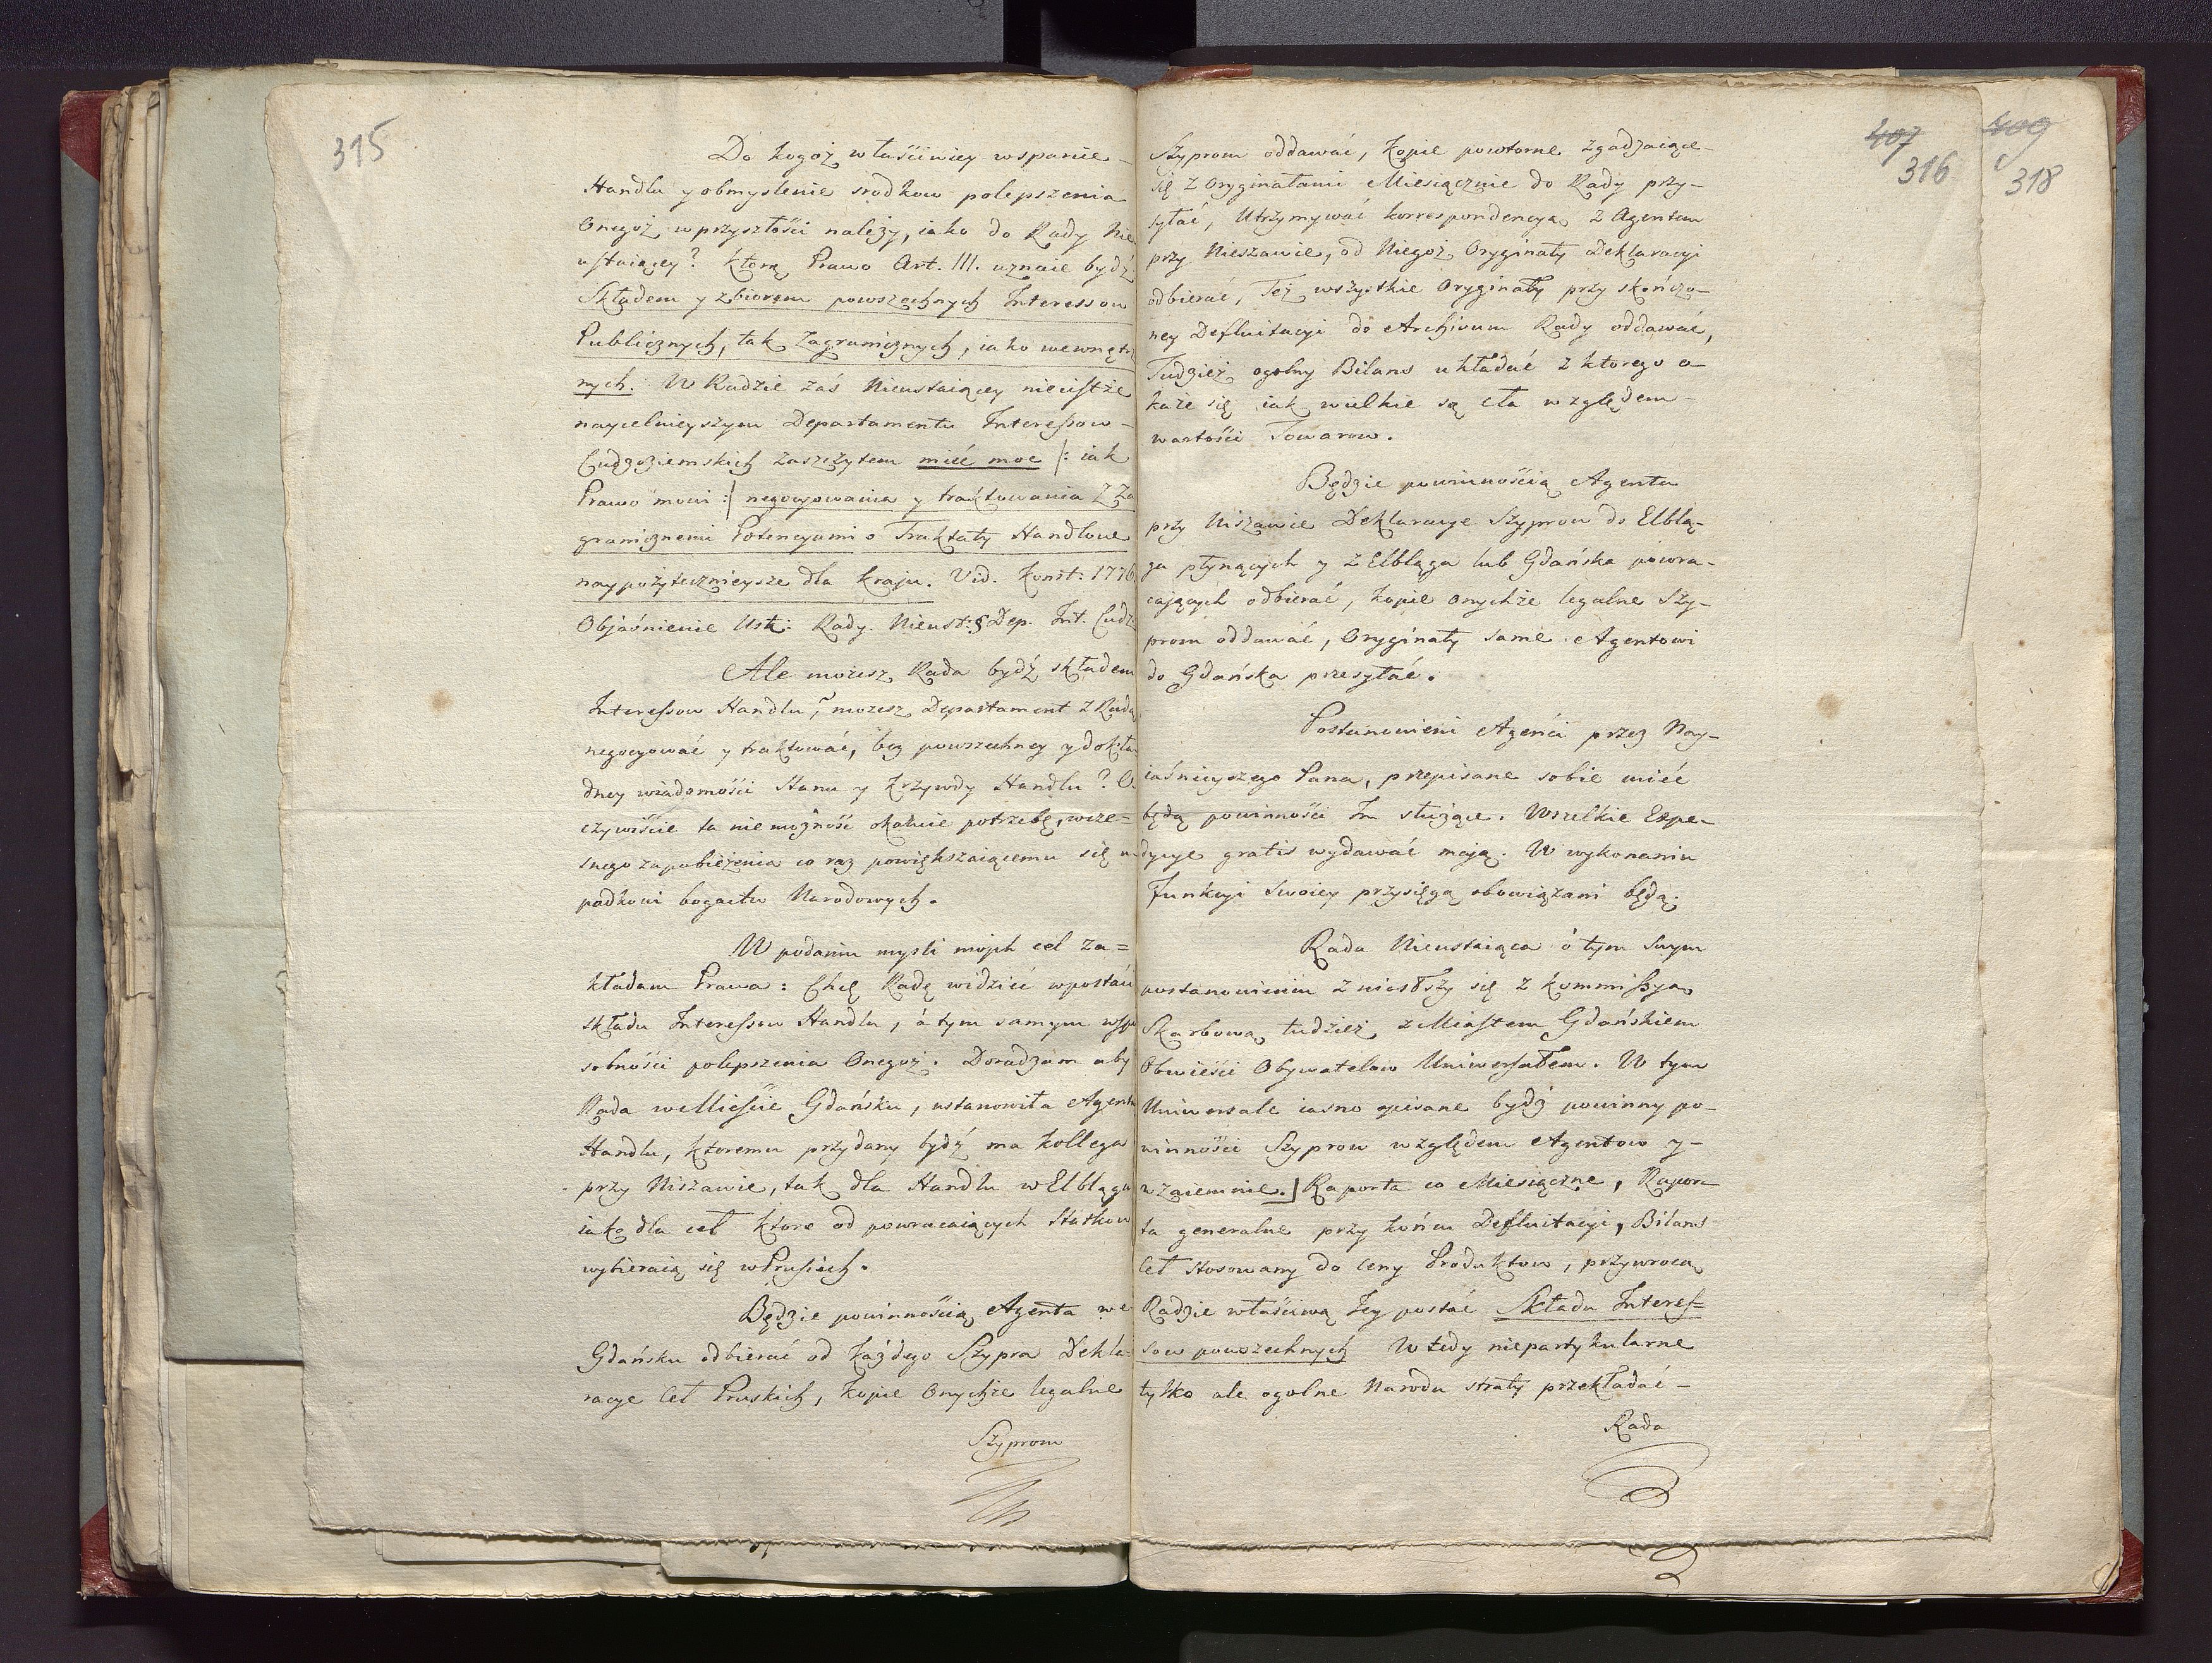 315
Do kogoż właściwiey wsparcie
Handlu y obmyslenie srodkow polepszenia
Onegoż w przyszłości należy, iako do Rady Nie
ustaiącey? ktorą Prawo Art. III. uznaie bydź
Składem y zbiorem powszechnych Interessow
Publicznych, tak Zagranicznych, iako wewnętrz
nych. W Radzie zaś Nieustaiącey nieiestże
naycelnieyszym Departamentu Interessow
Cudzoziemskich zaszczytem mieć moc /: iak
Prawo mowi :/ negocyowania y traktowania z Za
granicznemi Potencyami o Traktaty Handlowe
naypożytecznieysze dla kraju. Vid. Konst: 1776.
Objaśnienie Ust: Rady. Nieust: § Dep. Int. Cudz.
Ale możesz Rada bydź składem
Interessow Handlu, możesz Departament z Radą
negocyować y traktować, bez powszechney y dokła
dney wiadomości Stanu y krzywdy Handlu? O
czywiście ta niemożność okazuie potrzebę, wcze=
snego zapobieżenia co raz powiększaiącemu się u
padkowi bogactw Narodowych.
W podaniu mysli moich cel za=
kładam Prawa: Chcę Radę widzieć w postaci
składu Interessow Handlu, á tym samym w spo
sobności polepszenia Onegoż. Doradzam aby
Rada w Mieście Gdańsku, ustanowiła Agenta
Handlu, ktoremu przydany bydź ma Kollega
przy Niszawie, tak dla Handlu w Elblągu
iako dla ceł ktore od powracaiących Statkow
wybieraią się w Prusiech.
Będzie powinnością Agenta we
Gdańsku odbierać od każdego Szypra Dekla
racye Ceł Pruskich, kopie Onychże legalne
Szyprom
407
316
409
318
Szyprom oddawać, kopie powtorne zgadzaiące
się z Oryginałami Miesiącznie do Rady przy-
syłać, Utrzymywać korrespondencyą z Agentem
przy Nieszawie, od Niegoż Oryginały Deklaracyi
odbierać, Też wszystkie Oryginały przy skończo-
ney Defluitacyi do Archivum Rady oddawać,
Tudzież ogolny Bilans układać z ktorego o-
każe się iak wielkie są cła względem
wartości Towarow.
Będzie powinnością Agenta
przy Niszawie Deklaracye Szyprow do Elblą-
ga płynących y z Elbląga lub Gdańska powra-
cających odbierać, kopie onychże legalne Szy-
prom oddawać, Oryginały same Agentowi
do Gdańska przesyłać.
Postanowieni Agenci przez Nay-
iaśnieyszego Pana, przepisane sobie mieć
będą powinności Im służące. Wszelkie Expe-
dycye gratis wydawać mają. W wykonaniu
Funkcyi Swoiey przysięgą obowiązani będą.
Rada Nieustaiąca o tym Swym
postanowieniu zniosłszy się z Kommissyą
Skarbową tudzież z Miastem Gdańskiem
Obwieści Obywatelow Uniwersałem. W tym
Uniwersale iasno opisane bydź powinny po-
winności Szyprow względem Agentow y-
wzaiemnie. Raporta co Miesiączne, Rapor-
ta generalne przy końcu Defluitacyi, Bilans
Ceł stosowany do Ceny Produktow, przywrocą
Radzie właściwą Jey postać Składu Interes=
sow powszechnych Wtedy niepartykularne
tylko ale ogolne Narodu straty przekładać
Rada